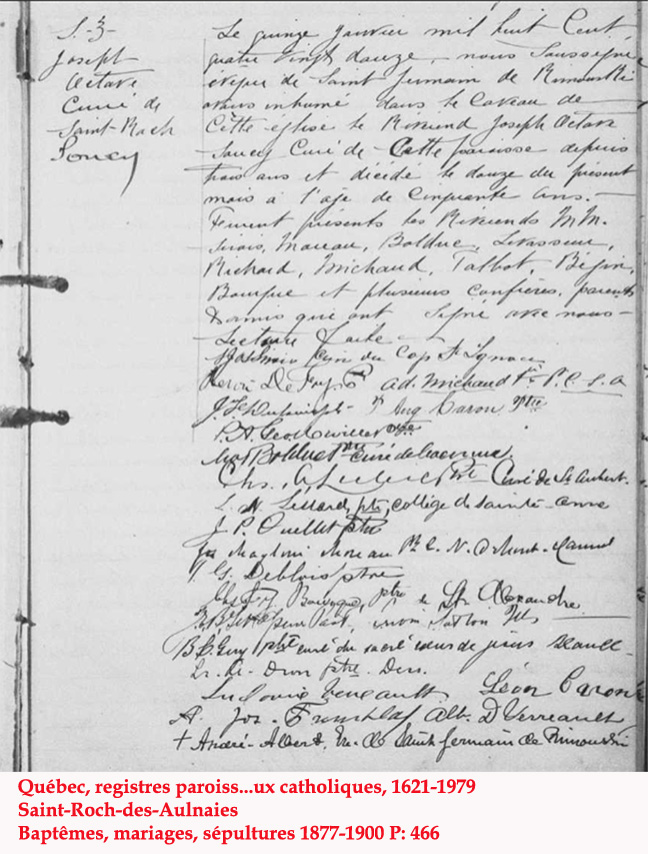 S-3-
Joseph
Octave
Curé de
Saint-Roch
Soucy
Le quinze janvier mil huit Cent
quatre vingt douze, nous Soussigné
évêque de Saint Germain de Rimouski
avons inhumé dans le Caveau de
Cette église le Révérend Joseph Octave
Soucy Curé de Cette paroisse depuis
trois ans et décédé le douze du présent
mois à l'âge de Cinquante ans.
Furent présents les Révérends MM.
Sirois, Moreau, Bolduc, Levasseur,
Richard, Michaud, Talbot, Bégin,
Bourque et plusieurs confrères, parents
& amis qui ont signé avec nous -
Lecture faite -
Sirois Curé du Cap St Ignace
Ad. Michaud Ptre P. C. S. A
Aug Caron Ptre
Bolduc Ptre Curé de
Chs. Ptre Curé de St Aubert.
ptre, collège de Sainte-Anne
J. P. Ouellet ptre
Moreau Pt C. N. D. Mont-Carmel
G. Deblois ptre
ptre St. Alexandre
B. C. Guy ptre curé du sacré coeur de
ptre
Ludovic Léon Caron
A. Jos. Tremblay Alb. D Verreault
+ André-Albert, Ev. de Saint Germain de Rimouski
Québec, registres paroiss...ux catholiques, 1621-1979
Saint-Roch-des-Aulnaies
Baptêmes, mariages, sépultures 1877-1900 P: 466